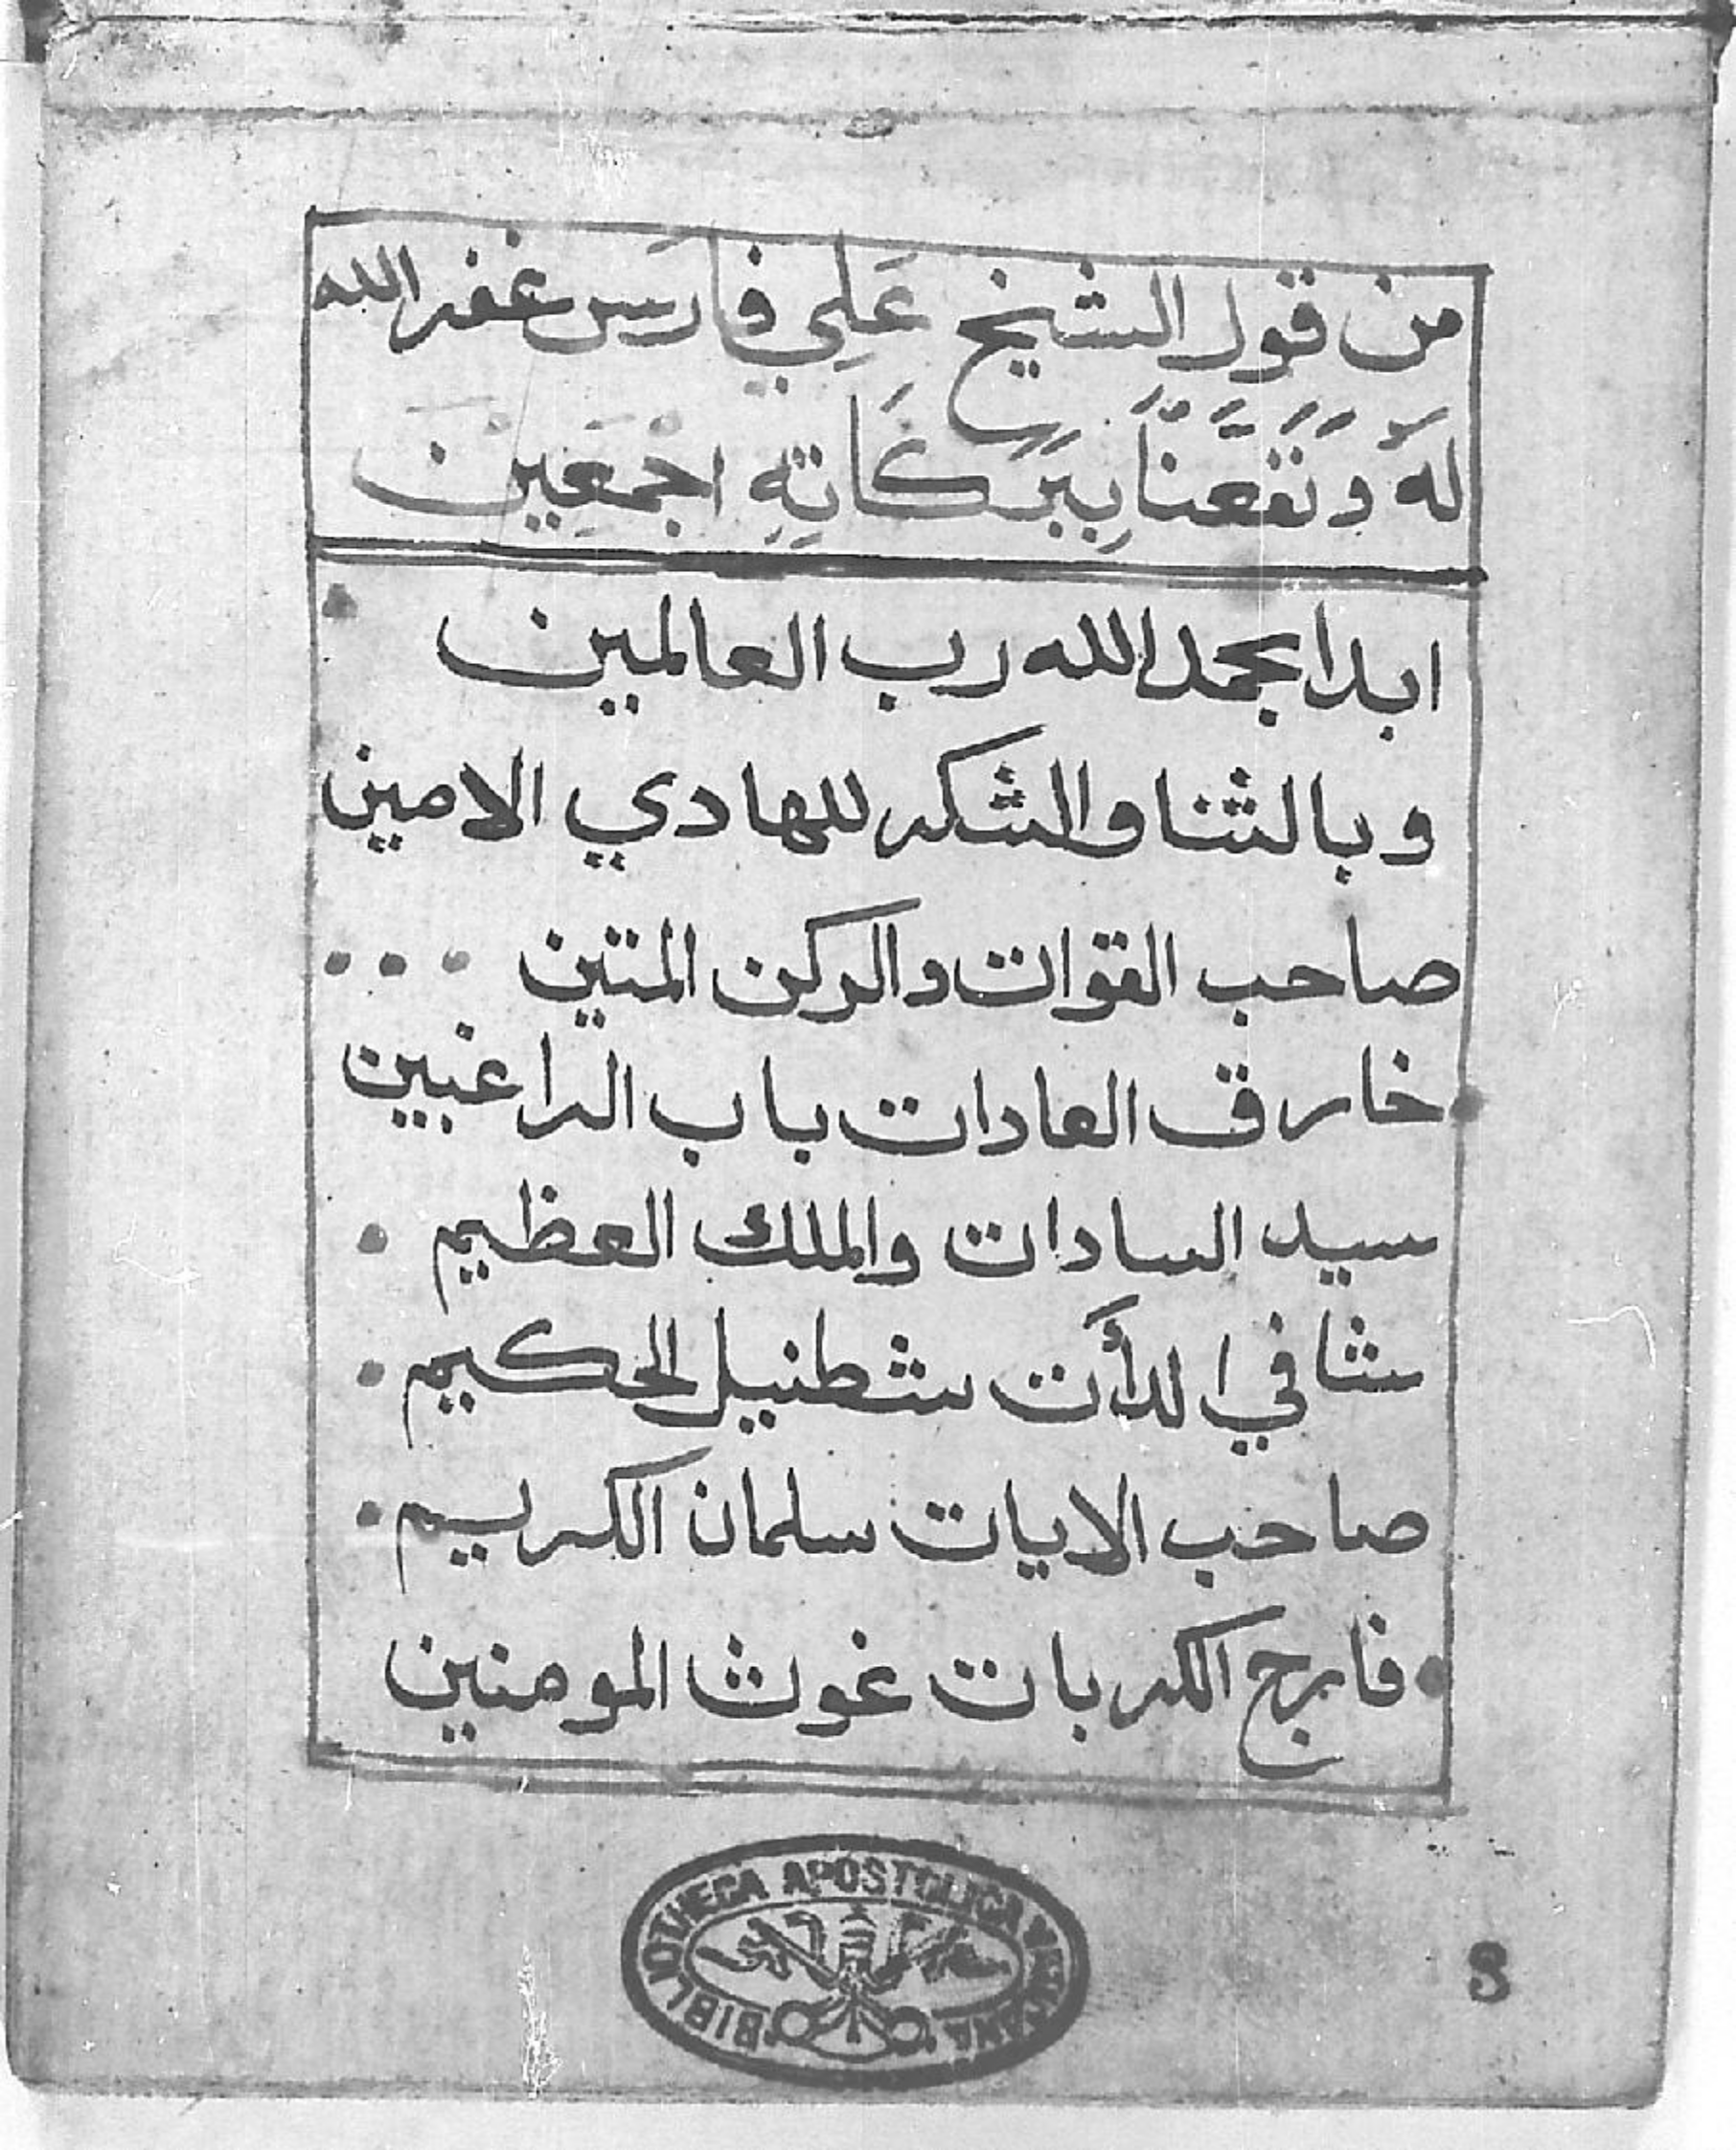 من قول الشيخ عَلِي فارَس غفر الله
لَهُ وَنَفَعَنَا بِبَرَكَاتِهِ اجْمَعِيْنَ
ابدا بحمد الله رب العالمين
وبالثنا والشكر للهادي الامين
صاحب القوات والركن المتين
خارق العادات باب الراغبين
سيد السادات والملك العظيم
شافي الدأت شطنيل الحكيم
صاحب الايات سلمان الكريم
فارج الكربات غوث المومنين
BIBLIOTHECA APOSTOLICA VATICANA